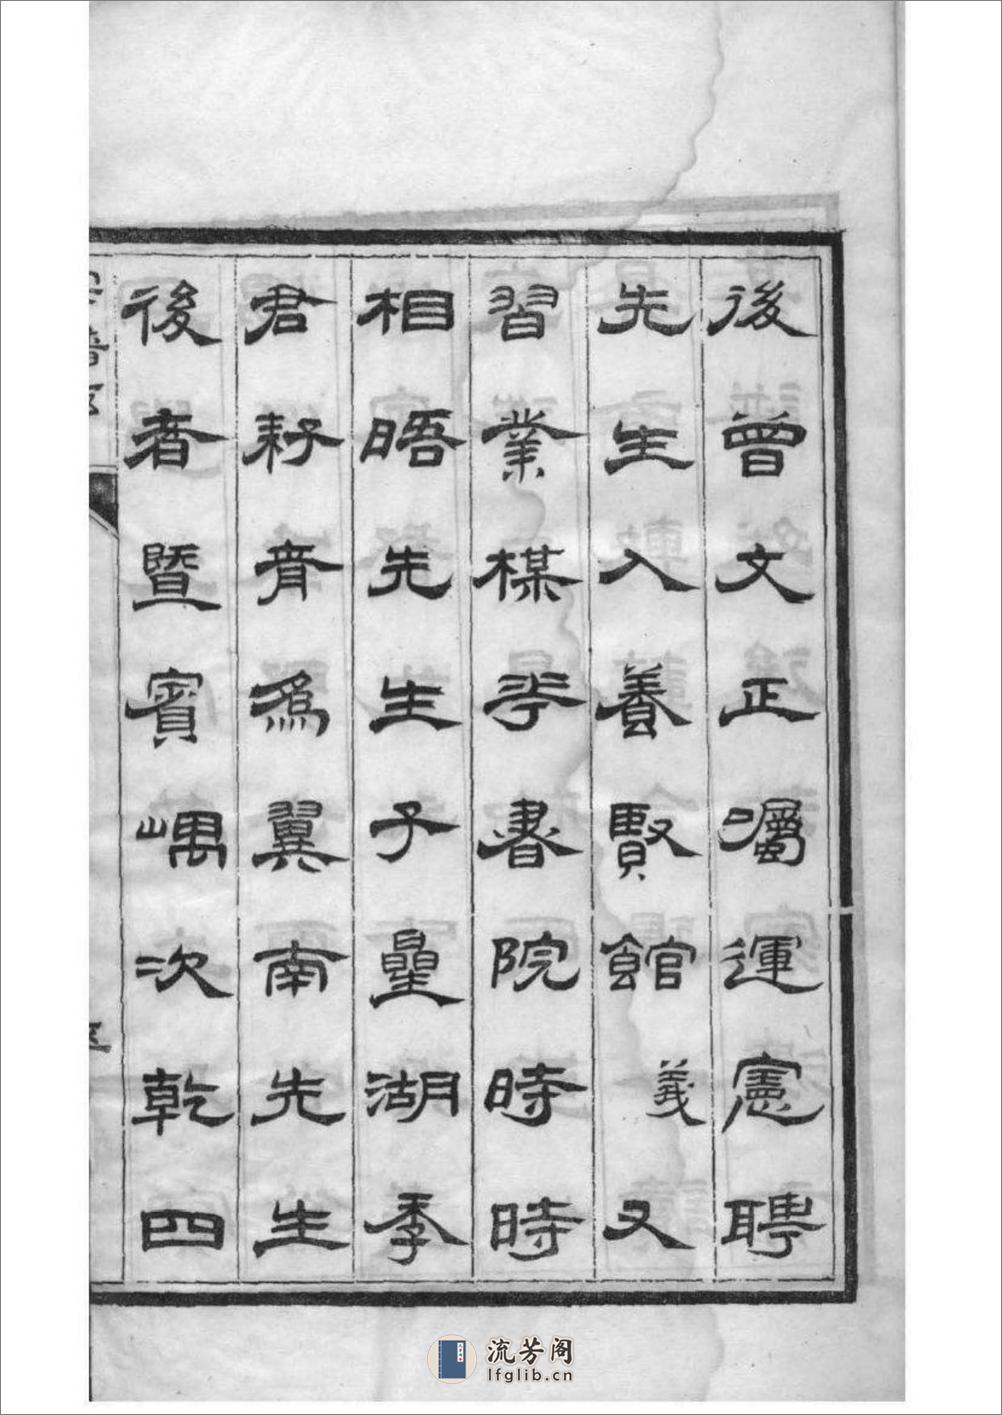 後曾文正嘱運憲聘
先生入養賢館義又
習業楳花書院時時
相晤先生子星湖季
君耔青爲翼南先生
後者暨賓嵎次乾四
流芳阁
lfglib.cn